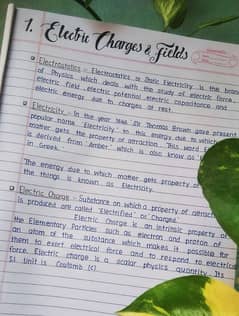 1. Electric Charges & Fields
Electrostatics :- Electrostatics or Static Electricity is the branch
of Physics which deals with the study of electric force,
electric field, electric potential, electric capacitance and
electric energy due to charges at rest.
Electricity :- In the year 1646 Sir Thomas Brown gave present
popular name 'Electricity' to this energy due to which
matter gets the property of attraction. This word
is derived from 'Amber' which is also known as
in Greek.
The energy due to which matter gets property of
the things is known as Electricity.
Electric Charge :- Substance on which a property of attrac
is produced are called 'Electrified' or 'Charged'.
Electric Charge is an Intrinsic property of
the Elementary Particles such as electron and proton of
an atom of the substance which makes it possible for
them to exert electrical force and to respond to electrical
force. Electric charge is a scalar physics quantity. Its
SI Unit is Coulomb (C).